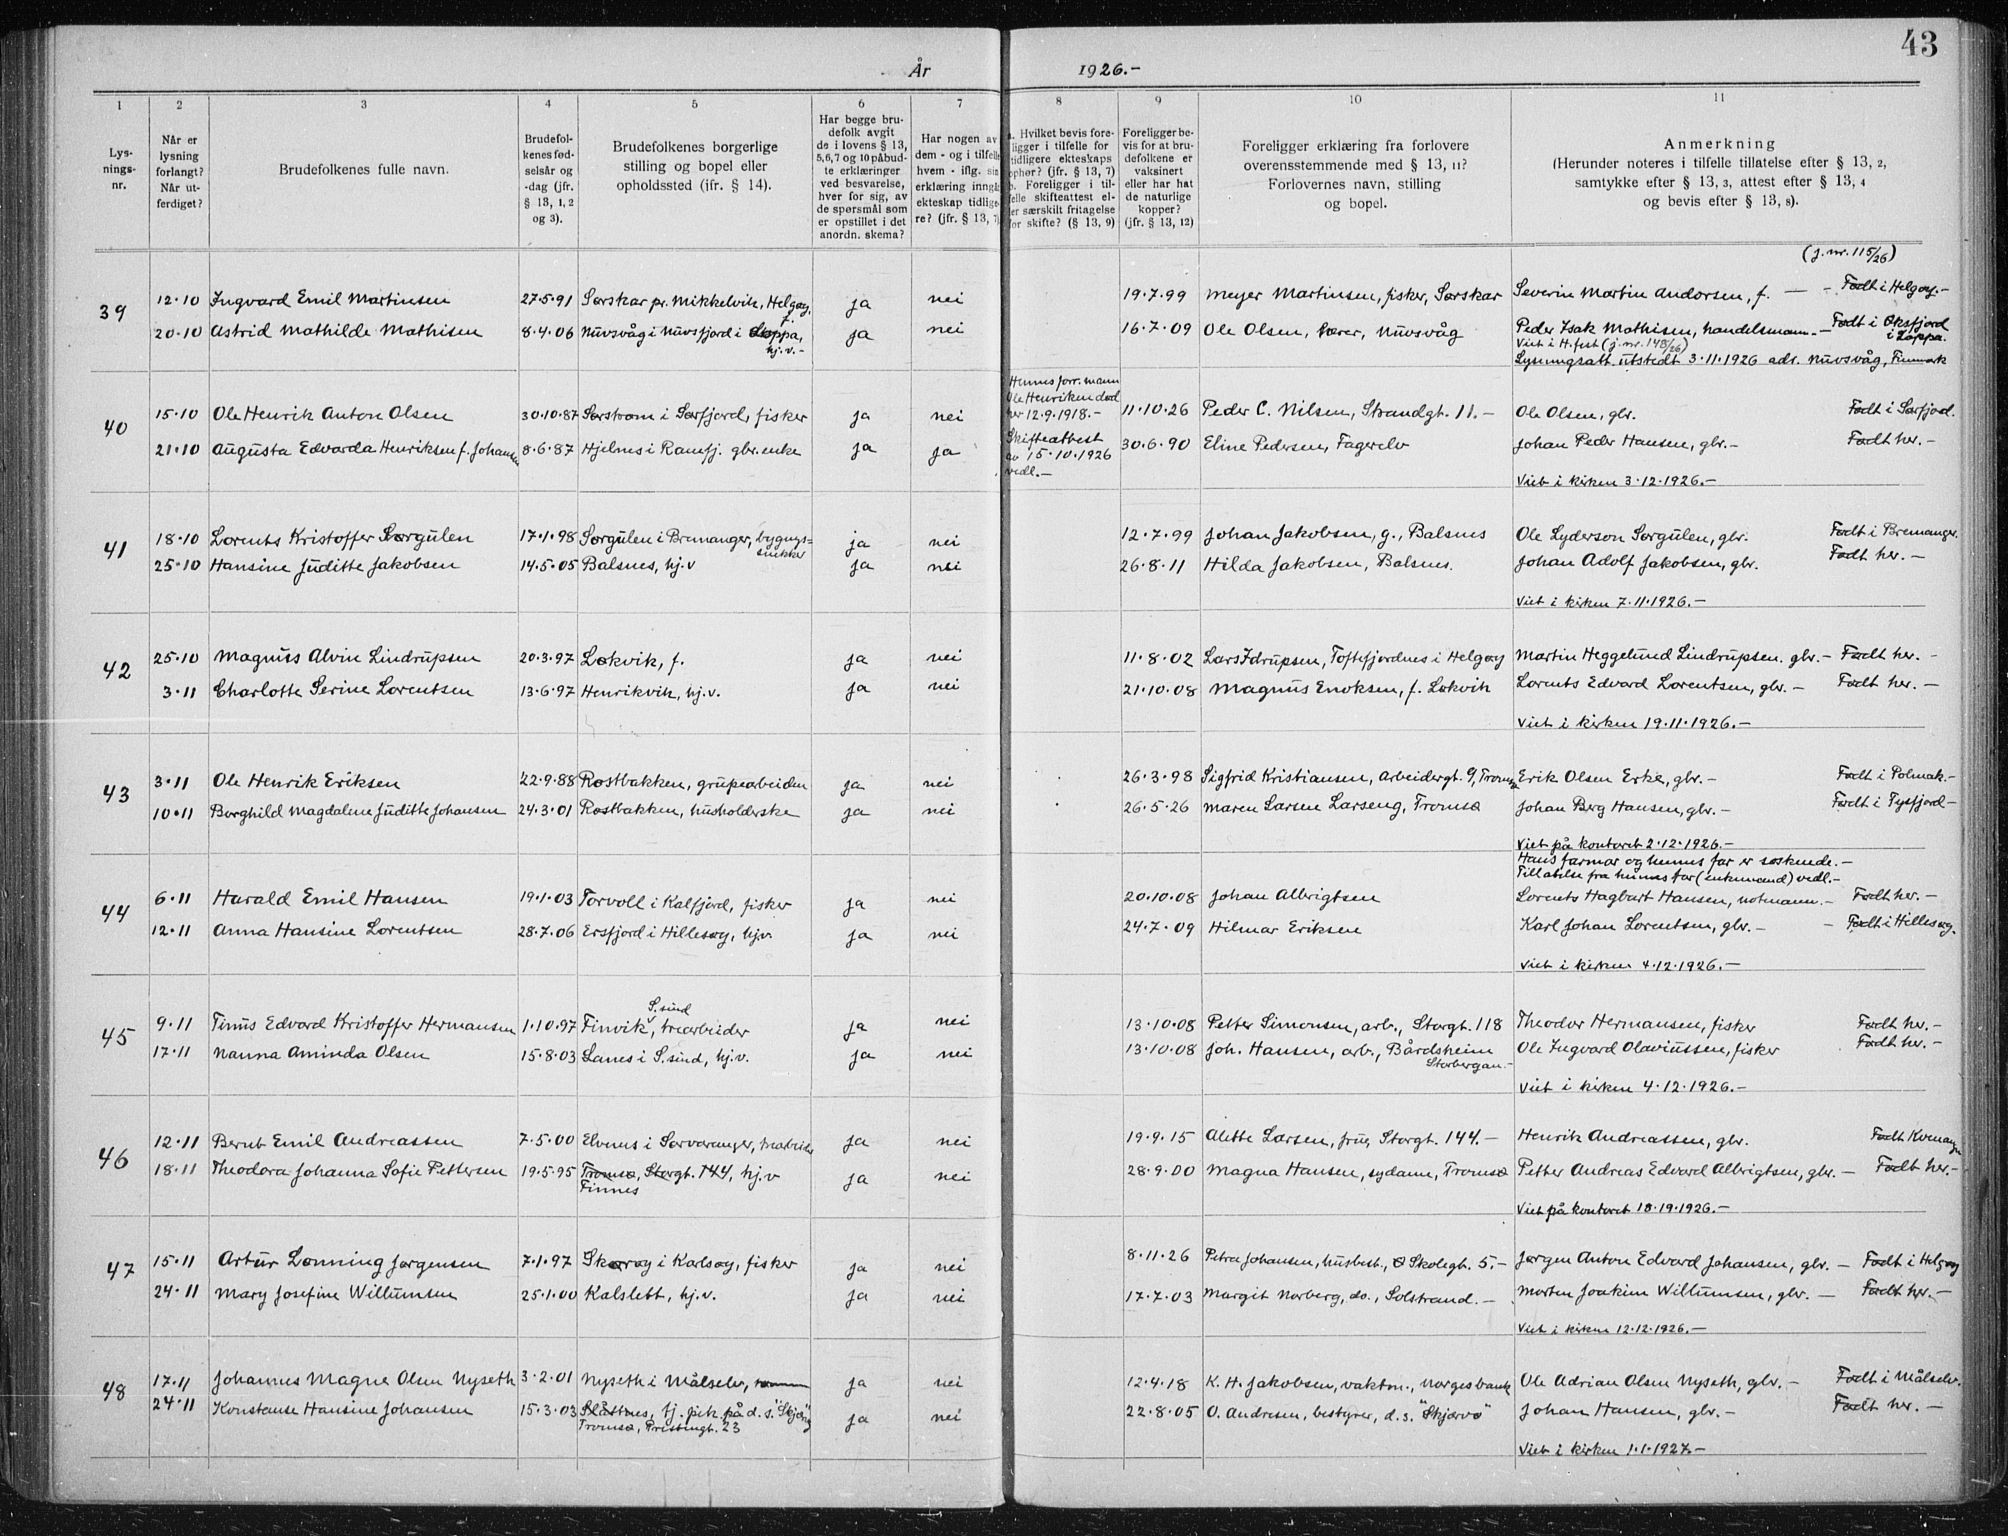 43
År 1926.-
1 2 3 4 5 6 7 8 9 10 11
Lys-
nings-
nr.
Når er
lysning
forlangt?
Når ut-
ferdiget?
Brudefolkenes fulle navn.
Brudefol-
kenes fød-
selsår og
-dag (jfr.
§ 13, 1, 2
og 3).
Brudefolkenes borgerlige
stilling og bopel eller
opholdssted (jfr. § 14).
Har begge bru-
defolk avgit
de i lovens § 13,
5,6,7 og 10 påbud-
te erklæringer
ved besvarelse,
hver for sig, av
de spørsmål som
er opstillet i det
anordn. skema?
Har nogen av
dem - og i tilfelle
hvem - iflg. sin
erklæring inngå
ekteskap tidlige-
re? (jfr. § 13, 7)
a. Hvilket bevis fore-
ligger i tilfelle for
tidligere ekteskaps
ophør? (jfr. § 13, 7)
b. Foreligger i til-
felle skifteattest el-
ler særskilt fritagelse
for skifte? (§ 13, 9)
Foreligger be-
vis for at bru-
defolkene er
vaksinert
eller har hat
de naturlige
kopper?
(jfr. § 13, 12)
Foreligger erklæring fra forlovere
overensstemmende med § 13, 11?
Forlovernes navn, stilling
og bopel.
Anmerkning
(Herunder noteres i tilfelle tillatelse efter § 13, 2,
samtykke efter § 13, 3, attest efter § 13, 4
og bevis efter § 13, 8).
(j.nr. 115/26)
39 12.10 Ingvard Emil Martinsen 27.5.91 Sørskar pr. Mikkelvik, Helgøy, f. ja nei 19.7.99 Meyer Martinsen, fisker, Sørskar Severin Martin Andorsen, f. — - Født i Helgøy.-
20.10 Astrid Mathilde Mathisen 8.4.06 Nuvsvåg i Nuvsfjord i Loppa, hj.v.- ja nei 16.7.09 Ole Olsen, lærer, Nuvsvåg Peder Isak Mathisen, handelsmann.- Født i Øksfjord i Loppa.
Viet i H.fest (j.nr. 148/26)
Lysningsatt. utstedt 3.11.1926 adr. Nuvsvåg, Finmark
Hennes forr. mann
Ole Henriksen død
her 12.9.1918.-
40 15.10 Ole Henrik Anton Olsen 30.10.87 Sørstrøm i Sørfjord, fisker ja nei 11.10.26 Peder C. Nilsen, Strandgt. 11.- Ole Olsen, gbr. Født i Sørfjord.
Skifteattest
av 15.10.1926
vedl.-
21.10 Augusta Edvarda Henriksen f. Johansen 8.6.87 Hjelnes i Ramfj. gbr. enke ja ja 30.6.90 Eline Pedersen, Fagerelv Johan Peder Hansen, gbr.- Født her.-
Viet i kirken 3.12.1926.-
41 18.10 Lorents Kristoffer Sørgulen 17.1.98 Sørgulen i Bremanger, bygnings-snekker ja nei 12.7.99 Johan Jakobsen, g., Balsnes Ole Lyderson Sørgulen, gbr. Født i Bremanger.
25.10 Hansine Juditte Jakobsen 14.5.05 Balsnes, hj.v ja nei 26.8.11 Hilda Jakobsen, Balsnes. Johan Adolf Jakobsen, gbr. Født her.-
Viet i kirken 7.11.1926.-
42 25.10 Magnus Alvin Lindrupsen 20.3.97 Løkvik, f. ja nei 11.8.02 Lars Idrupsen, Toftefjordnes i Helgøy Martin Heggelund Lindrupsen. gbr.- Født her.-
3.11 Charlotte Serine Lorentsen 13.6.97 Henrikvik, hj.v. ja nei 21.10.08 Magnus Enoksen, f. Løkvik Lorents Edvard Lorentsen, gbr.- Født her.-
Viet i kirken 19.11.1926.-
43 3.11 Ole Henrik Eriksen 22.9.88 Rostbakken, grupearbeider ja nei 26.3.98 Sigfrid Kristiansen, Arbeidergt. 9, Tromsø Erik Olsen Erke, gbr.- Født i Polmak.-
10.11 Borghild Magdalene Juditte Johansen 24.3.01 Rostbakken, husholderske ja nei 26.5.26 Maren Larsen Larseng, Tromsø Johan Berg Hansen, gbr.- Født i Tysfjord-
Viet på kontoret 2.12.1926.-
Hans farmor og hennes far er søskende.-
Tillatelse fra hennes far (enkemand) vedl.-
44 6.11 Harald Emil Hansen 19.1.03 Torvoll i Kalfjord, fisker ja nei 20.10.08 Johan Albrigtsen Lorents Hagbart Hansen, notmann.- Født her.-
12.11 Anna Hansine Lorentsen 28.7.06 Ersfjord i Hillesøy, hj.v. ja nei 24.7.09 Hilmar Eriksen Karl Johan Lorentsen, gbr.- - Født i Hillesøy.
Viet i kirken 4.12.1926.-
45 9.11 Tinus Edvard Kristoffer Hermansen 1.10.97 Finvik, S.sund trearbeider ja nei 13.10.08 Petter Simonsen, arb., Storgt. 118 Theodor Hermansen, fisker Født her.-
17.11 Nanna Aminda Olsen 15.8.03 Lanes i S.sund, hj.v. ja nei 13.10.08 Joh. Hansen, arb., Bårdsheim Storbergan.- Ole Ingvard Olaviussen, fisker Født her.-
Viet i kirken 4.12.1926.-
46 12.11 Bernt Emil Andreassen 7.5.00 Elvenes i Sørvaranger, trearbeider ja nei 19.9.15 Alette Larsen, frue, Storgt. 144.- Henrik Andreassen, gbr. Født Kvenangen
18.11 Theodora Johanna Sofie Pettersen 19.5.95 Tromsø, Storgt. 144, hj.v ja nei 28.9.00 Magna Hansen, sydame, Tromsø Petter Andreas Edvard Albrigtsen, gbr.- Født her.-
Finnes
Viet på kontoret 18.19.1926.-
47 15.11 Artur Lønning Jørgensen 7.1.97 Skorøy i Karlsøy, fisker ja nei 8.11.26 Petra Johansen, husbest., Skolegt. 5.- Jørgen Anton Edvard Johansen, gbr.- Født i Helgøy
24.11 Mary Josefine Willumsen 25.1.00 Kalslett, hj.v. ja nei 17.7.03 Margit Norberg, do., Solstrand.- Morten Joakim Willumsen, gbr.- Født her.-
Viet i kirken 12.12.1926.-
48 17.11 Johannes Magne Olsen Nyseth 3.2.01 Nyseth i Målselv, ja nei 12.4.18 K.H. Jakobsen, vaktm., Norges bank Ole Adrian Olsen Nyseth, gbr.- Født i Målselv.
24.11 Konstanse Hansine Johansen 15.3.03 Slåttnes, tj. pik. på d.s. "Skjervø" ja nei 22.8.05 O. Andresen, bestyrer, d.s. "Skjervø" Johan Hansen, gbr.- Født her.-
Tromsø, Prestengt. 23
Viet i kirken 1.1.1927.-